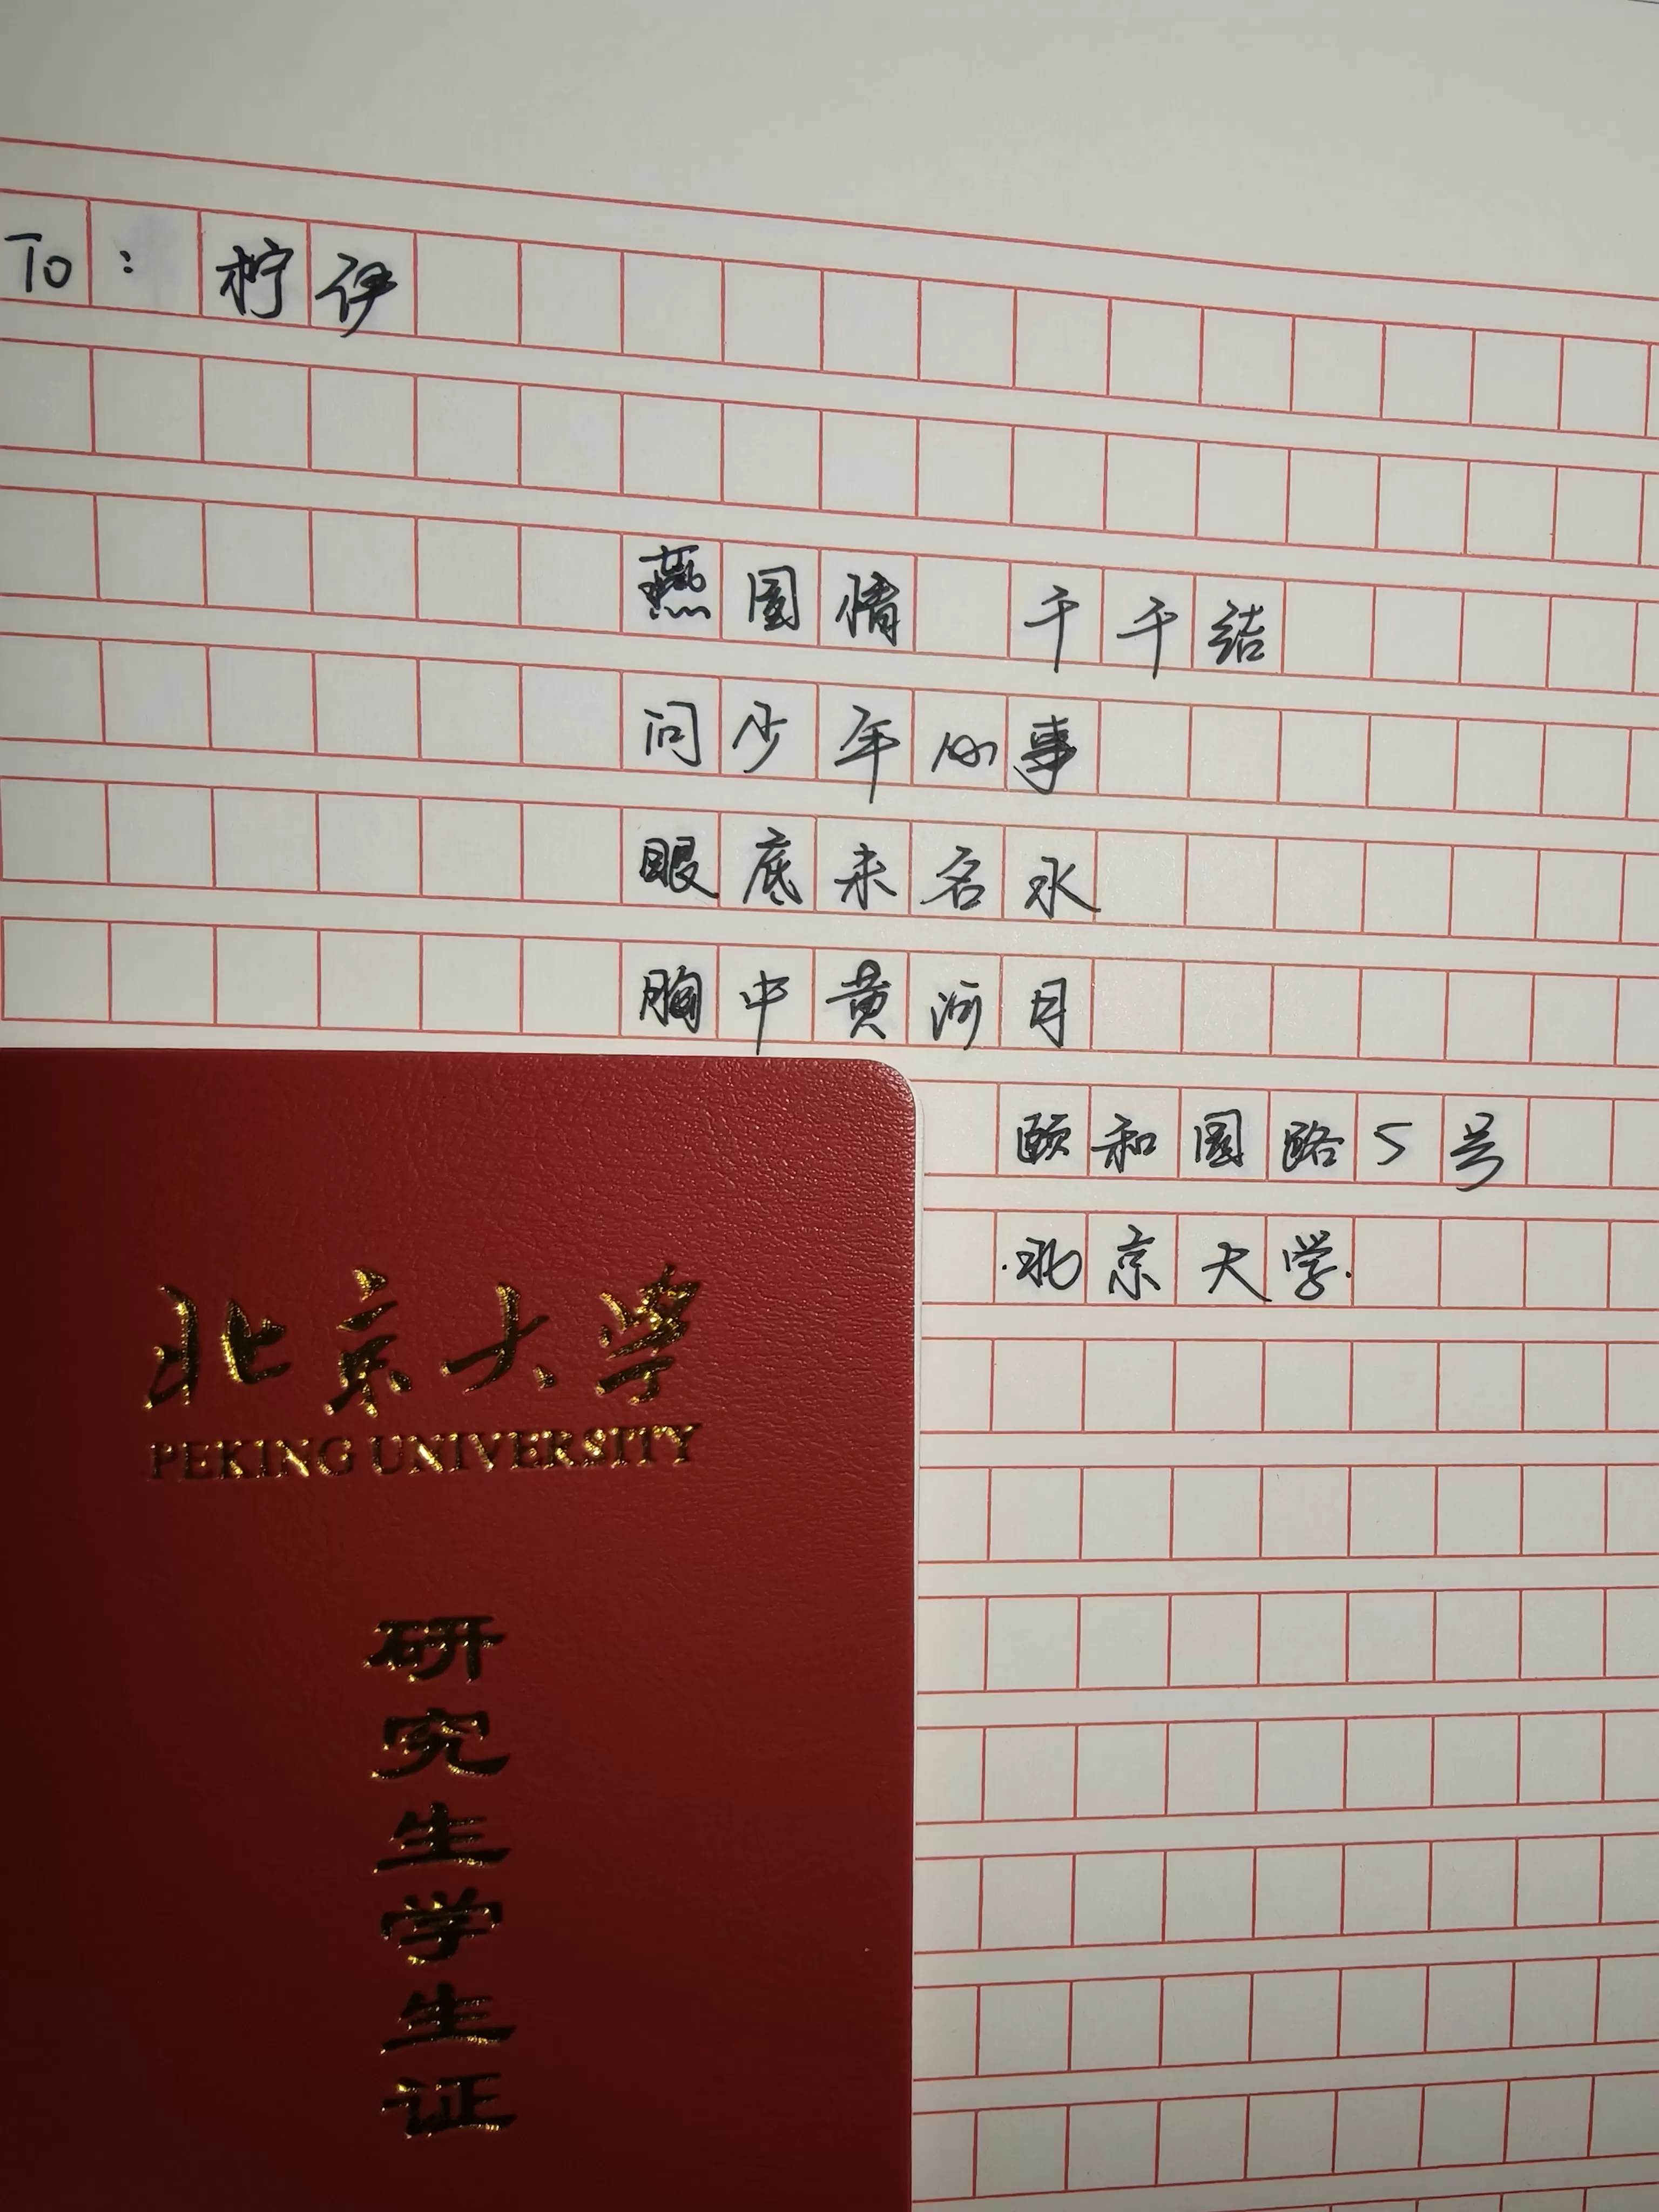 To: 柠伊
燕园情 千千结
问少年心事
眼底未名水
胸中黄河月
颐和园路5号
·北京大学·
北京大学
PEKING UNIVERSITY
研究生学生证